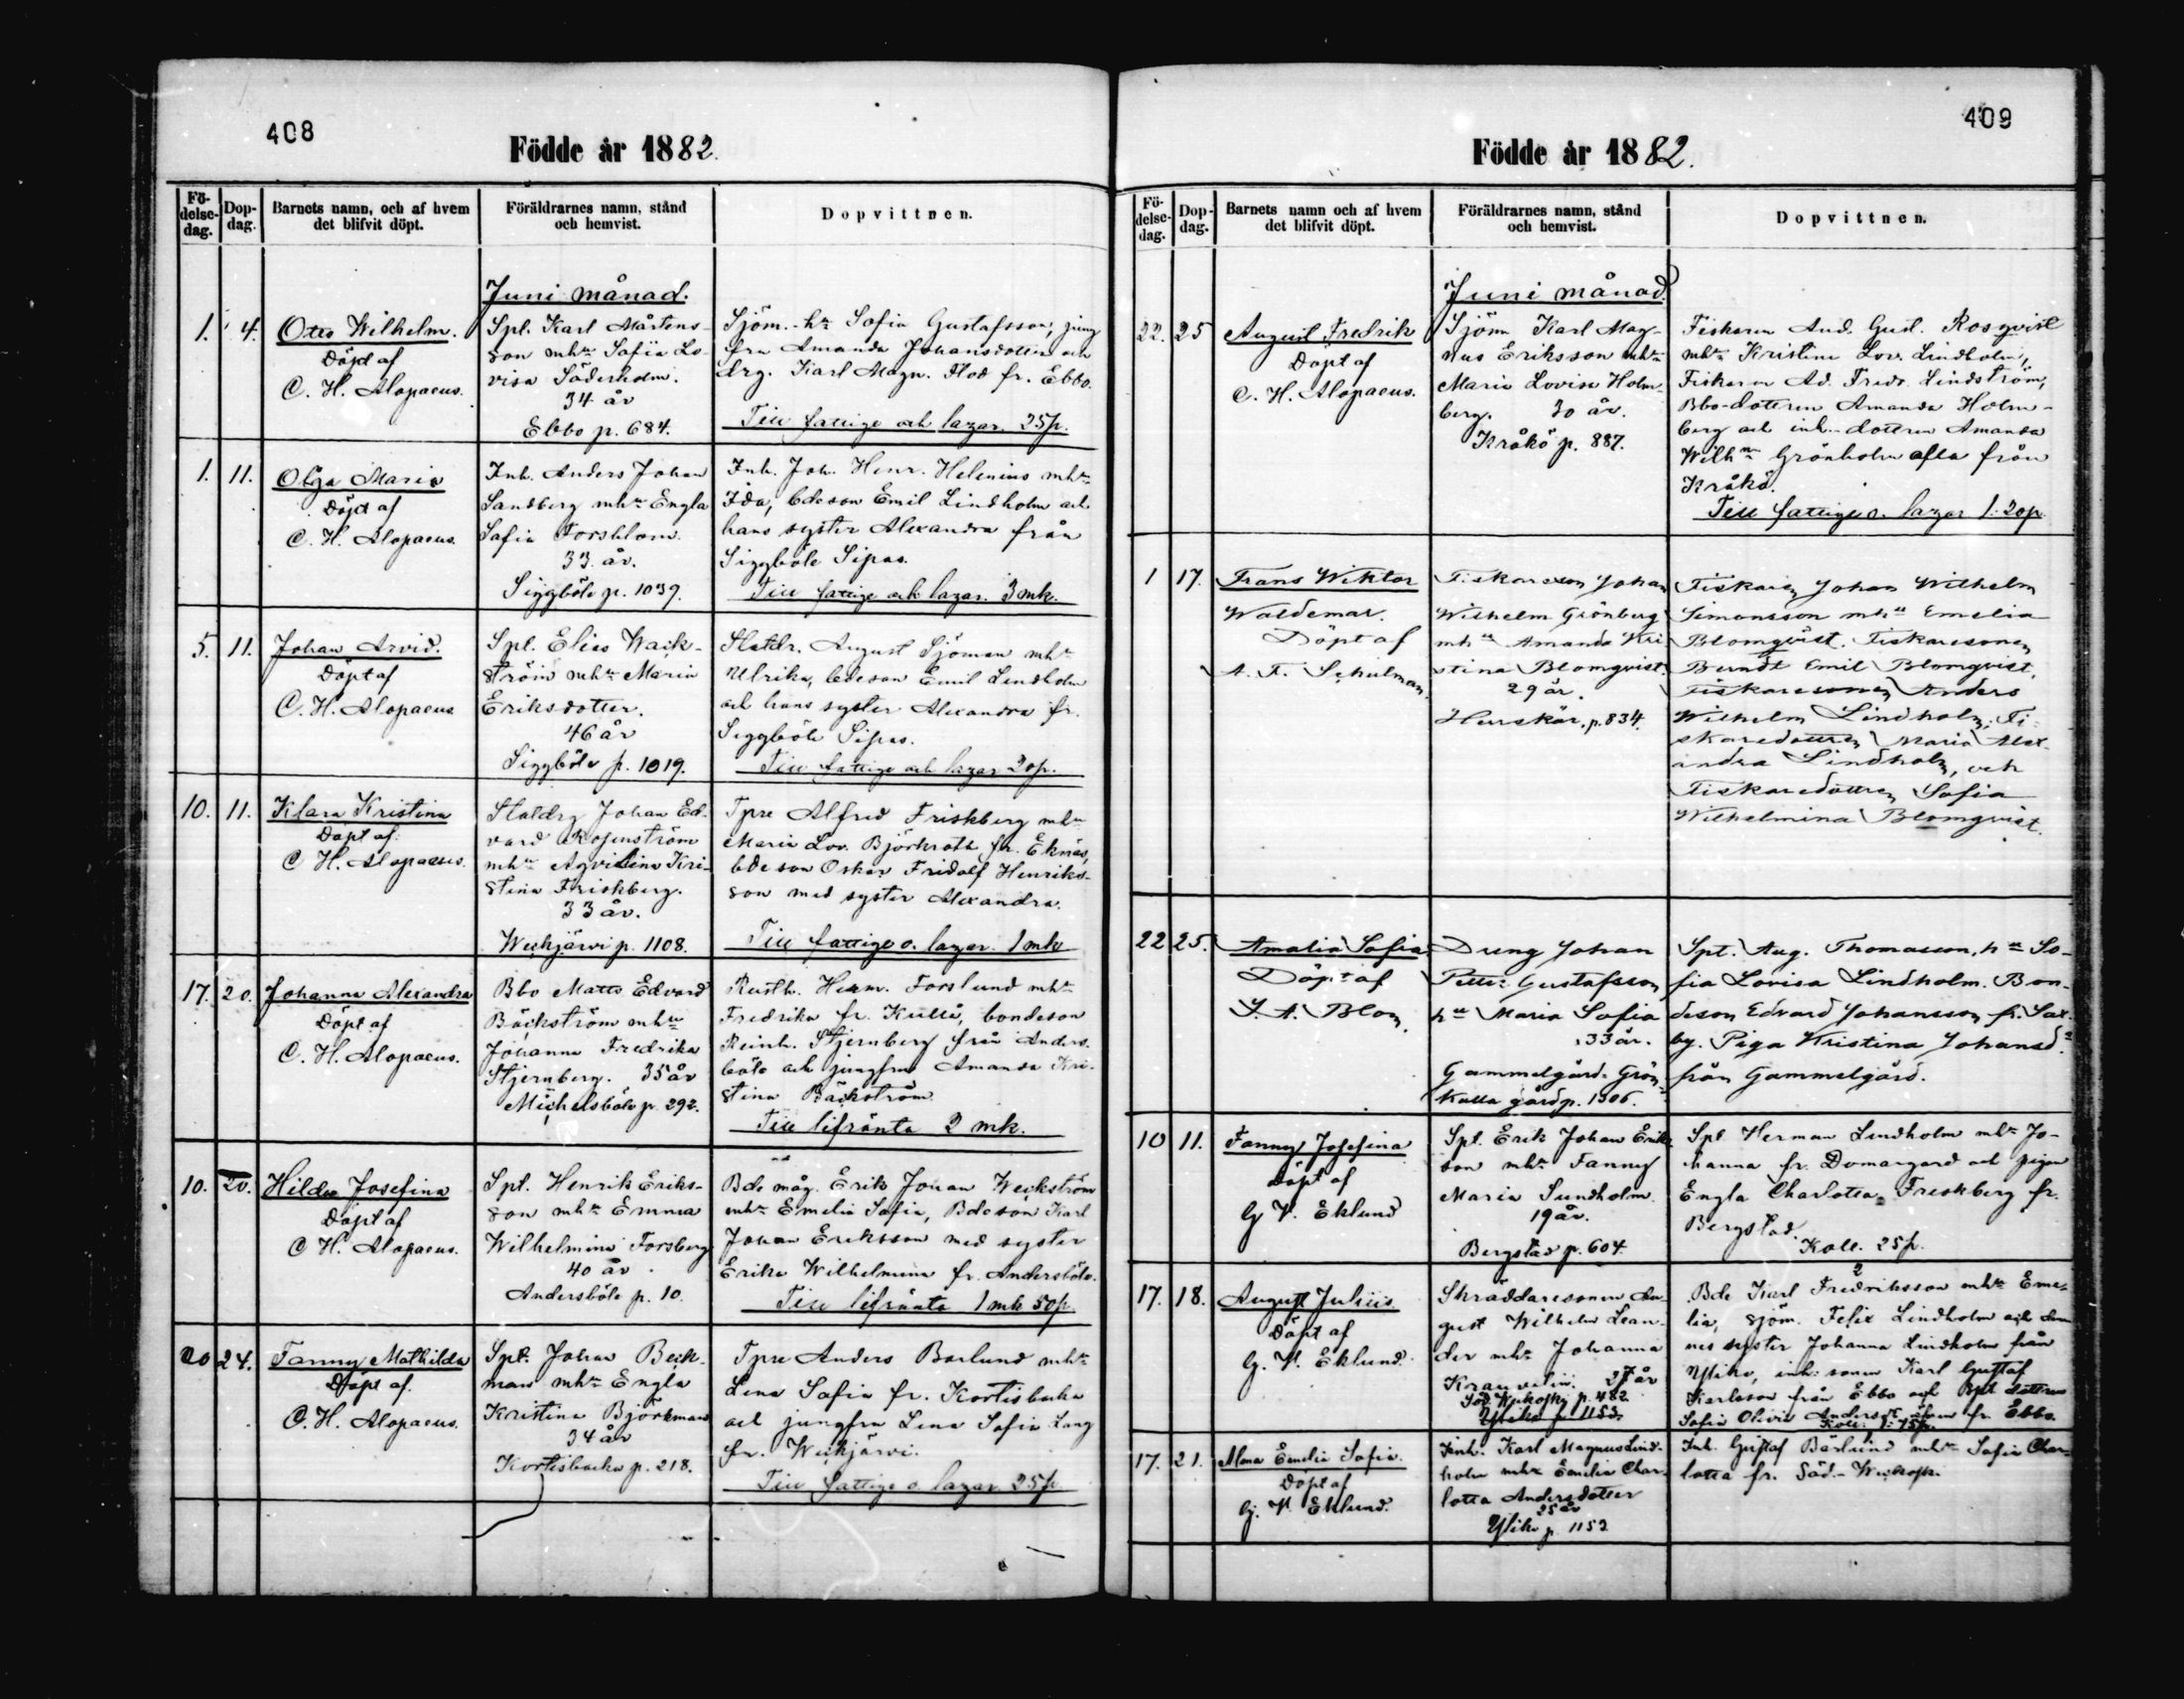 408
Födde år 1882.
Fö-
delse-
dag.
Dop-
dag.
Barnets namn, och af hvem
det blifvit döpt.
Föräldrarnes namn, stånd
och hemvist.
Dopvittnen.
Juni månad.
1. 4.
Otto Wilhelm.
Döpt af
C. H. Alopaeus.
Spl. Karl Mårtens-
son mhu Sofia Lo-
visa Söderholm.
34 år
Ebbo p. 684.
Sjöm. hu Sofia Gustafsson, jung
fru Amanda Johansdotter och
drg. Karl Magn. Flod fr. Ebbo.
Till fattige och lazar. 25p.
1. 11.
Olga Maria
Döpt af
C. H. Alopaeus.
Inh. Anders Johan
Sandberg mhu Engla
Sofia Forsblom.
33 år.
Siggböle p. 1039.
Inh. Joh. Henr. Helenius mhu
Ida, bdeson Emil Lindholm och
hans syster Alexandra från
Siggböle Sipas.
Till fattige och lazar. 3 mk.
5. 11.
Johan Arvid.
Döpt af
C. H. Alopaeus
Spl. Elias Weck-
ström mhu Maria
Eriksdotter.
46 år
Siggböle p. 1019.
August Sjöman mhu
Ulrika, bdeson Emil Lindholm
och hans syster Alexandra fr.
Siggböle Sipas.
Till fattige och lazar 20p.
10. 11.
Klara Kristina
Döpt af
C H. Alopaeus.
Staldrg Johan Ed-
vard Rosenström
mhu Kri-
stina Friskberg.
33 år.
Weckjärvi p. 1108.
Tpre Alfred Friskberg mhu
Maria Lov. Björkroth fr. Eknäs,
bdeson Oskar Fridolf Henriks-
son med syster Alexandra.
Till fattige o. lazar. 1 mk
17. 20.
Johanna Alexandra
Döpt af
C. H. Alopaeus.
Bbo Matts Edvard
Bäckström mhu
Johanna Fredrika
Stjernberg. 35 år
Michelsböle p. 292.
Rusth. Herm. Forslund mhu
Fredrika fr. Kullå, bondeson
Reinh. Stjernberg från Anders-
böle och jungfru Amanda Kri-
stina Bäckström
Till lifränta 2 mk.
10. 20.
Hilda Josefina
Döpt af
C H. Alopaeus.
Spl. Henrik Eriks-
son mhu Emma
Wilhelmina Forsberg
40 år
Andersböle p. 10.
Bde måg. Erik Johan Weckström
mhu Emelie Sofia, Bdeson Karl
Johan Eriksson med syster
Erika Wilhelmina fr. Andersböle.
Till lifränta 1 mk 50p.
20 24.
Fanny Mathilda
Döpt af
C. H. Alopaeus.
Spl. Johan Beck-
man mhu Engla
Kristina Björkman
34 år
Kortisbacka p. 218.
Tpre Anders Barlund mhu
Lena Sofia fr. Kortisbacka
och jungfru Lena Sofia Lang
fr. Weckjärvi.
Till fattige o. lazar. 25p
409
Födde år 1882.
Fö-
delse-
dag.
Dop-
dag.
Barnets namn och af hvem
det blifvit döpt.
Föräldrarnes namn, stånd
och hemvist.
Dopvittnen.
Juni månad.
22. 25
August Fredrik
Döpt af
C. H. Alopaeus.
Sjöm Karl Mag-
nus Eriksson mhu
Maria Lovisa Holm-
berg. 30 år.
Kråkö p. 887.
Fiskaren And. Gust. Rosqvist
mhu Kristina Lov. Lindholm,
Fiskaren Ad. Fredr. Lindström,
Bbo-dottren Amanda Holm-
berg och inh. dottren Amanda
Wilhna Grönholm alla från
Kråkö.
Till fattige o. lazar 1: 20p.
1 17.
Frans Wiktor
Waldemar.
Döpt af
A. F. Schulman.
Fiskareson Johan
Wilhelm Grönberg
mhu Amanda Kri
stina Blomqvist.
29 år.
Hurskär. p. 834.
Fiskaren Johan Wilhelm
Simonsson mhu Emelia
Blomqvist. Fiskaresonen
Berndt Emil Blomqvist,
Fiskaresonen Anders
Wilhelm Lindholm, Fi-
skaredottren Maria Alex-
andra Lindholm, och
Fiskaredottren Sofia
Wilhelmina Blomqvist.
22 25.
Amalia Sofia
Döpt af
Blom.
Dreng Johan
Petter Gustafsson
hu Maria Sofia
33 år.
Gammelgård. Grön-
kulla gård p. 1506.
Spt. Aug. Thomasson, hu So-
fia Lovisa Lindholm. Bon-
deson Edvard Johansson fr. Sax-
by. Piga Kristina Johansd.
från Gammelgård.
10 11.
Fanny Josefina
Döpt af
G V. Eklund
Spl. Erik Johan Eriks-
son mhu Fanny
Maria Sundholm.
19 år.
Bergstad p. 604.
Spl Herman Lindholm mhu Jo-
hanna fr. Domargard och pigan
Engla Charlotta Friskberg fr.
Bergstad.
Koll. 25p.
17. 18.
August Julius
Döpt af
G. V. Eklund.
Skräddaresonen Au-
gust Wilhelm Lean-
der mhu Johanna
27 år
p. 482
Ylike p. 1153.
Bde Karl Fredriksson mhu Eme-
lia, sjöm. Felix Lindholm och den-
nes syster Johanna Lindholm från
Ylike, inh. sonen Karl Gustaf
Karlsson från Ebbo och Spl. dottren
Sofia Olivia fr. Ebbo.
17. 21.
Alma Emelia Sofia.
Döpt af
G. V. Eklund.
Inh. Karl Magnus Lind-
holm mhu Emelia Char-
lotta Andersdotter
25 år
Ylike p. 1152
Inh. Gustaf Bärlund mhu Sofia Char-
lotta fr. Söd.-